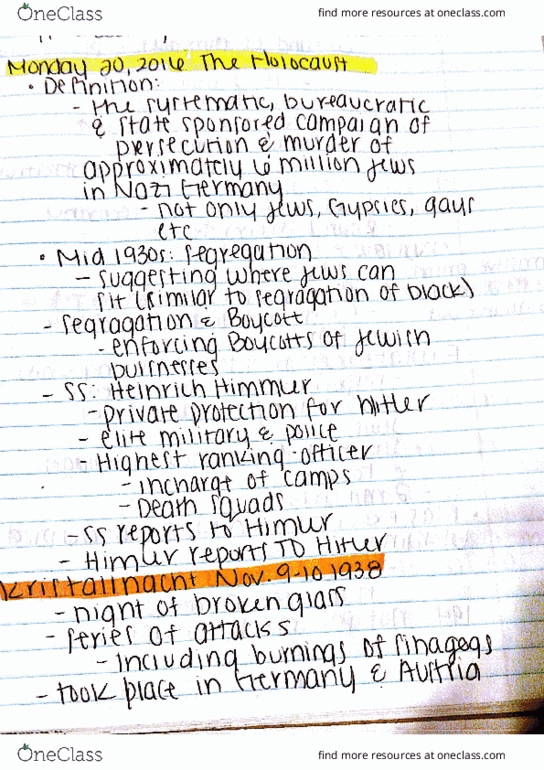 OneClass
find more resources at oneclass.com
Monday 20, 2016 The Holocaust
• Definition:
- the systematic, bureaucratic
& state sponsored campaign of
persecution & murder of
approximately 6 million Jews
in Nazi Germany
- not only Jews, Gypsies, gays
etc
• Mid 1930s: segregation
- suggesting where Jews can
sit (similar to segragation of black)
- segragation & Boycott
- enforcing Boycotts of Jewish
buisnesses
- SS: Heinrich Himmur
- private protection for Hitler
- elite military & police
- Highest ranking officer
- incharge of camps
- Death squads
- SS reports to Himur
- Himur reports TO Hitler
Kristallnacht Nov. 9-10 1938
- night of broken glass
- series of attacks
- including burnings of sinagogs
- took place in Germany & Austria
OneClass
find more resources at oneclass.com